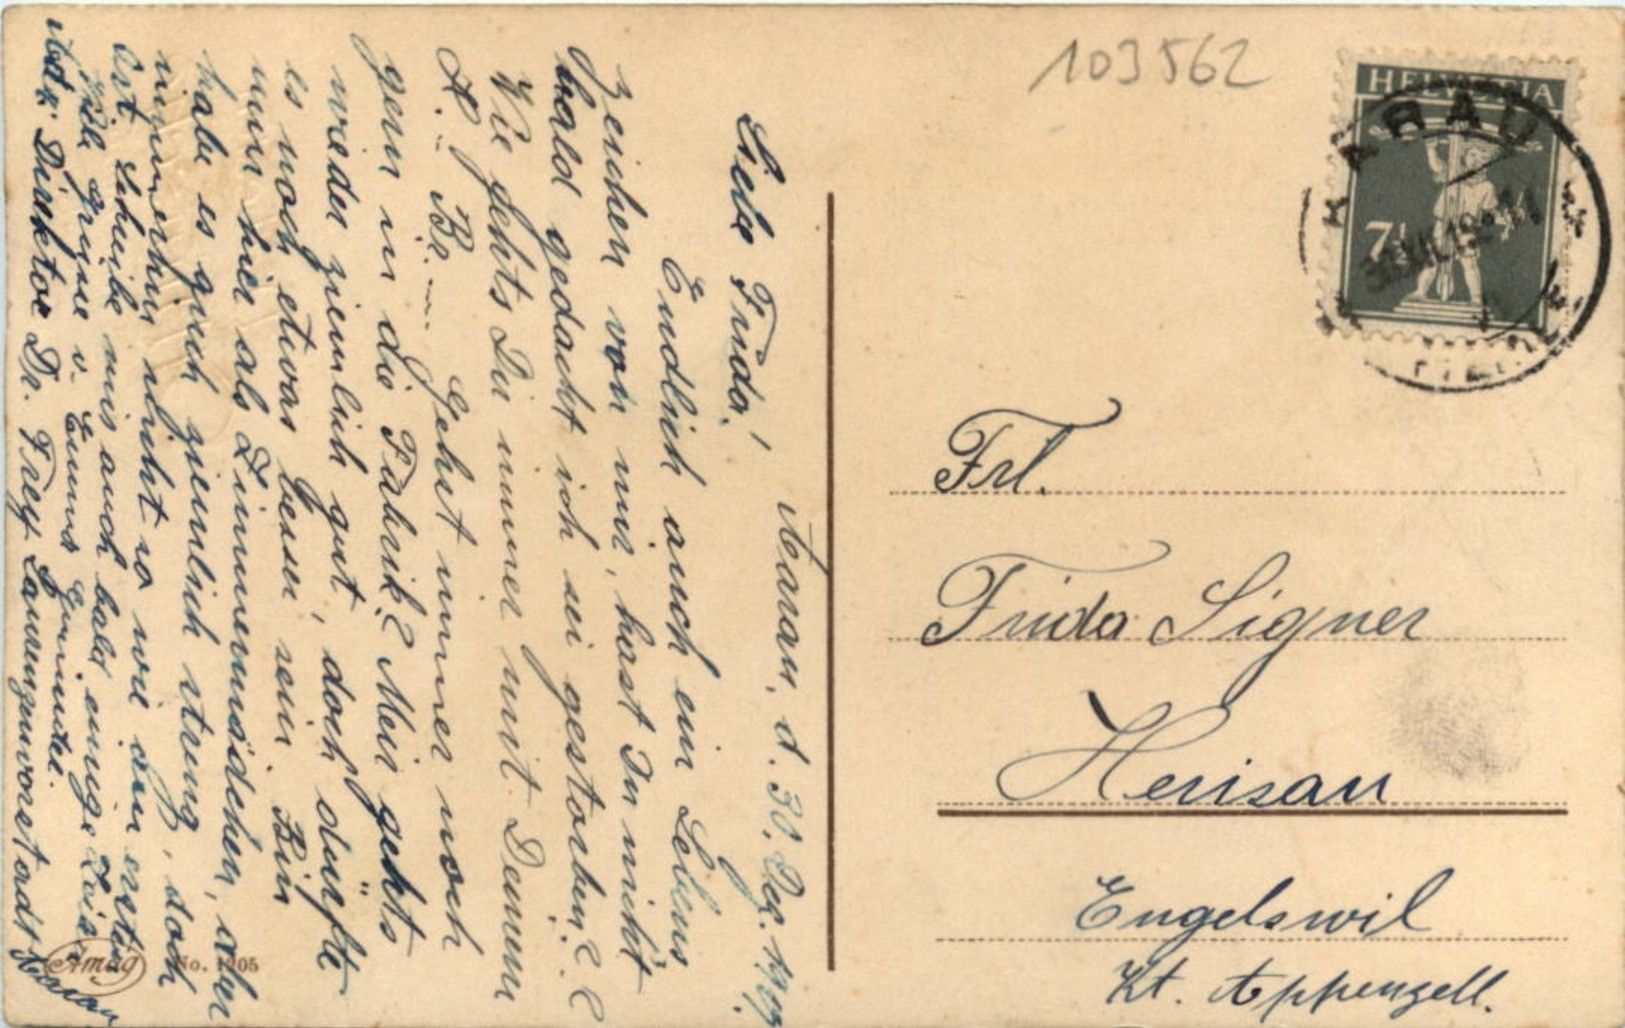 103562
HELVETIA
7½
AARAU
Aarau, d. 30. Dez. 19
Liebe Frida!
Endlich auch ein Lebens
zeichen von mir, hast Du nicht
bald gedacht ich sei gestorben?
Wie gehts Dir immer mit Deinem
H. Bä... Gehst immer noch
gern in die Fabrik? Mir gehts
wieder ziemlich gut, doch dürfte
es noch etwas besser sein. Bin
nun hier als Zimmermädchen, aber
habe es zieml­ich streng, doch
immerhin nicht so wie am ersten
Ort. Schreibe mir auch bald einige Zeilen
Viele Grüsse v. Emma
Adr: Direktor Dr. Frey Laurenzenvorstadt Aarau
Amag No. 1905
Frl.
Frida Signer
Herisau
Engelswil
Kt. Appenzell.